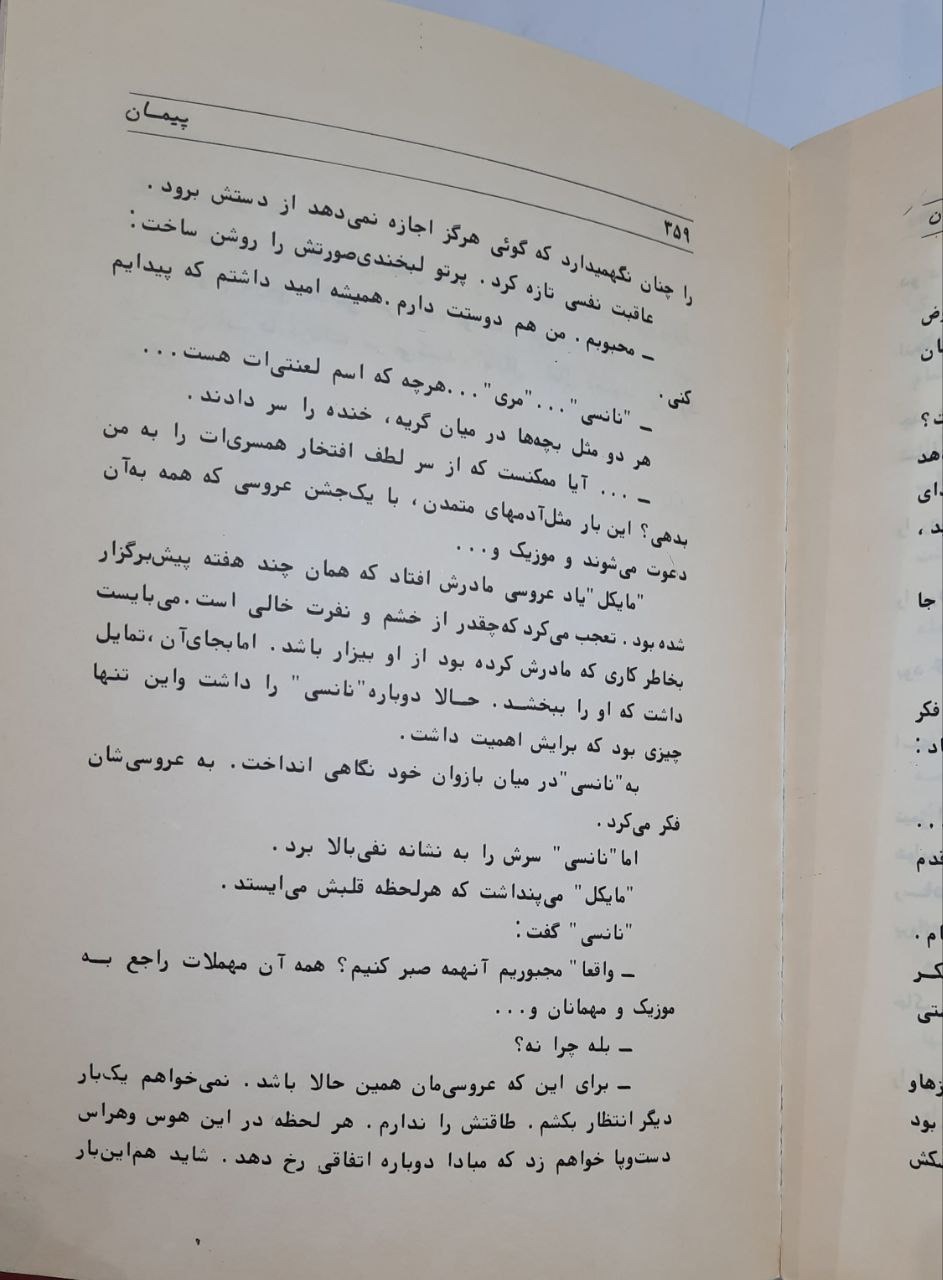 پیمـان
۳۵۹
را چنان نگهمیدارد که گوئی هرگز اجازه نمی‌دهد از دستش برود.
عاقبت نفسی تازه کرد. پرتو لبخندی‌صورتش را روشن ساخت:
ـ محبوبم. من هم دوستت دارم.همیشه امید داشتم که پیدایم
کنی.
ـ "نانسی"..."مری"...هرچه که اسم لعنتی‌ات هست...
هر دو مثل بچه‌ها در میان گریه، خنده را سر دادند.
ـ ... آیا ممکنست که از سر لطف افتخار همسری‌ات را به من
بدهی؟ این بار مثل‌آدمهای متمدن، با یک‌جشن عروسی که همه به‌آن
دعوت می‌شوند و موزیک و...
"مایکل"یاد عروسی مادرش افتاد که همان چند هفته پیش‌برگزار
شده بود. تعجب می‌کرد که‌چقدر از خشم و نفرت خالی است.می‌بایست
بخاطر کاری که مادرش کرده بود از او بیزار باشد. امابجای‌آن،تمایل
داشت که او را ببخشـد. حـالا دوباره"نانسی" را داشت واین تنـها
چیزی بود که برایش اهمیت داشت.
به"نانسی"در میان بازوان خود نگاهی انداخت. به عروسی‌شان
فکر می‌کرد.
اما"نانسی" سرش را به نشانه نفی‌بالا برد.
"مایکل" می‌پنداشت که هرلحظه قلبش می‌ایستد.
"نانسی" گفت:
ـ واقعا" مجبوریم آنهمه صبر کنیم؟ همه آن مهملات راجع بـه
موزیک و مهمانان و...
ـ بله چرا نه؟
ـ برای این که عروسی‌مان همین حالا باشد. نمی‌خواهم یک‌بار
دیگر انتظار بکشم. طاقتش را ندارم. هر لحظه در این هوس وهراس
دست‌وپا خواهم زد که مبادا دوباره اتفاقی رخ دهد. شاید هم‌این‌بار